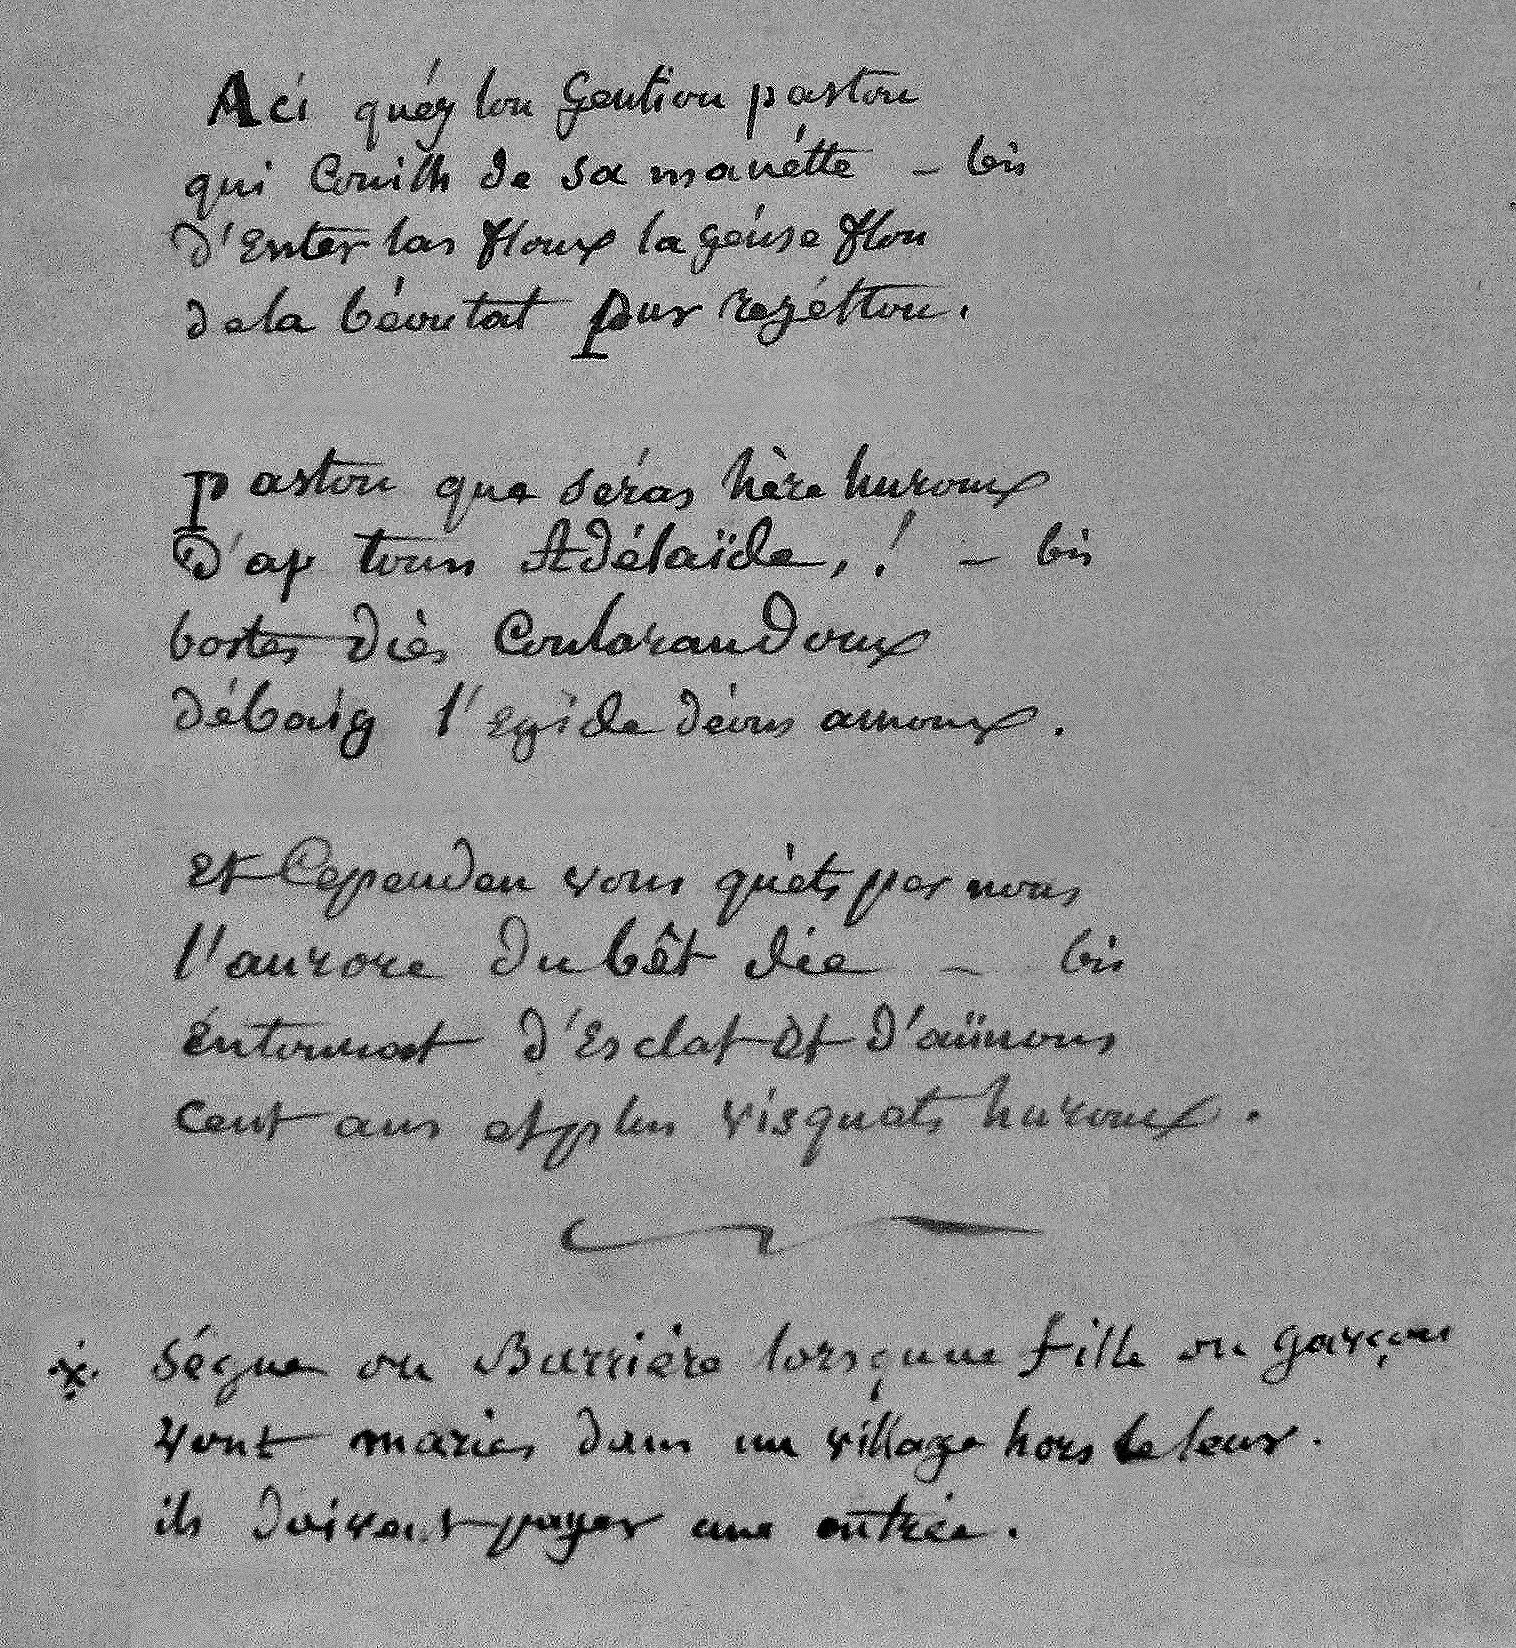 Aci quéy lou Gentiou pastou
qui Couilh de sa manétte – bis
d'Enter las flous la géuse flou
de la béoutat pur rezéttou.
pastou que séras hère hurous
D'ap toun Adélaïde,! – bis
bostes diès Coularan Doux
débaig l'Egide déous amoux.
Et Cependen vous qu'èts per nous
l'aurore du bêt die – bis
Entournat d'Esclat Et D'aünous
cent ans et plus visquats huroux.
x. Ségue ou Barrière lorsqu'une fille ou garçon
vont maries dans un village hors le leur.
ils doivent payer une entrée.